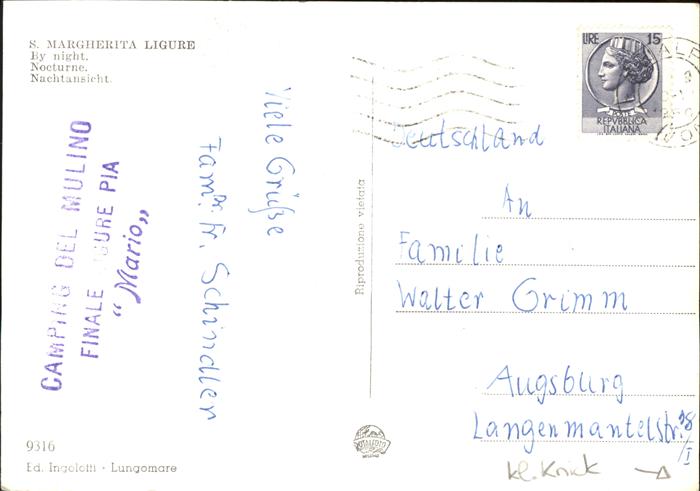 S. MARGHERITA LIGURE
By night.
Nocturne.
Nachtansicht.
CAMPING DEL MULINO
FINALE LIGURE PIA
"Mario"
Viele Grüße
Fam. Fr. Schindler
Riproduzione vietata
LIRE 15
POSTE
REPVBBLICA
ITALIANA
Deutschland
An
Familie
Walter Grimm
Augsburg
Langenmantelstr. 18/I
kl. Knick
9316
Ed. Ingolotti - Lungomare